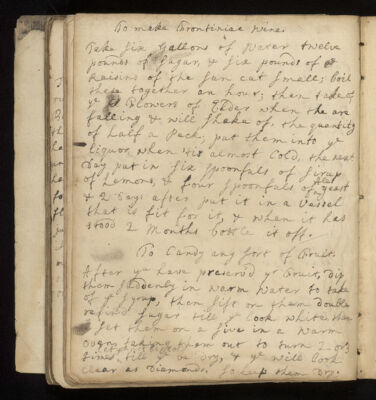 To make Frontiniac Wine
Take six Gallons of Water twelve
pounds of Sugar, & six pounds of
Raisins of the Sun cut small; boil
these together an hour; then take of
ye Flowers of Elder when the are
falling & will shake of, the quantity
of half a Peck; put them into ye
liquor when tis almost Cold, the next
Day put in six spoonfuls of Sirup
of Lemons, & four spoonfuls of Ale yeast
& 2 Days after put it in a Vessel
that is fit for it, & when it has
stood 2 Months bottle it off.
To Candy any sort of Fruit
After ye have preserv'd ye Fruit, dip
them suddenly in warm Water to take
of ye Syrup, then sift on them double
refin'd Sugar till ye look white then
set them on a sive in a warm
Oven taking them out to turn 2 or 3
times, till ye be Dry, & ye will look
Clear as Diamonds. So keep them Dry.